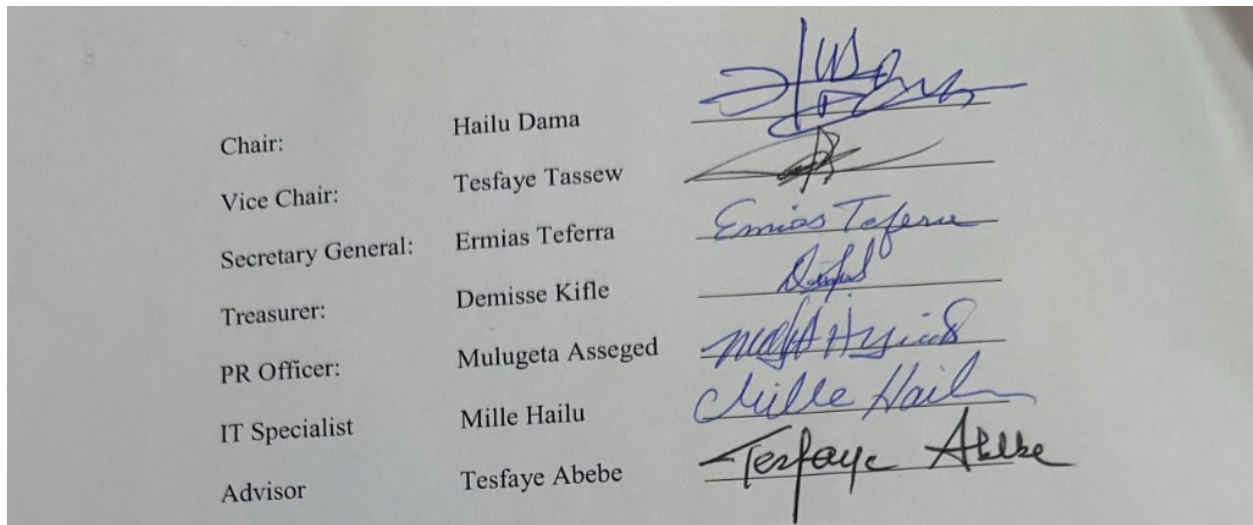 Chair: Hailu Dama
Vice Chair: Tesfaye Tassew
Secretary General: Ermias Teferra Ermias Teferra
Treasurer: Demisse Kifle
PR Officer: Mulugeta Asseged
IT Specialist Mille Hailu Mille Hailu
Advisor Tesfaye Abebe Tesfaye Abebe